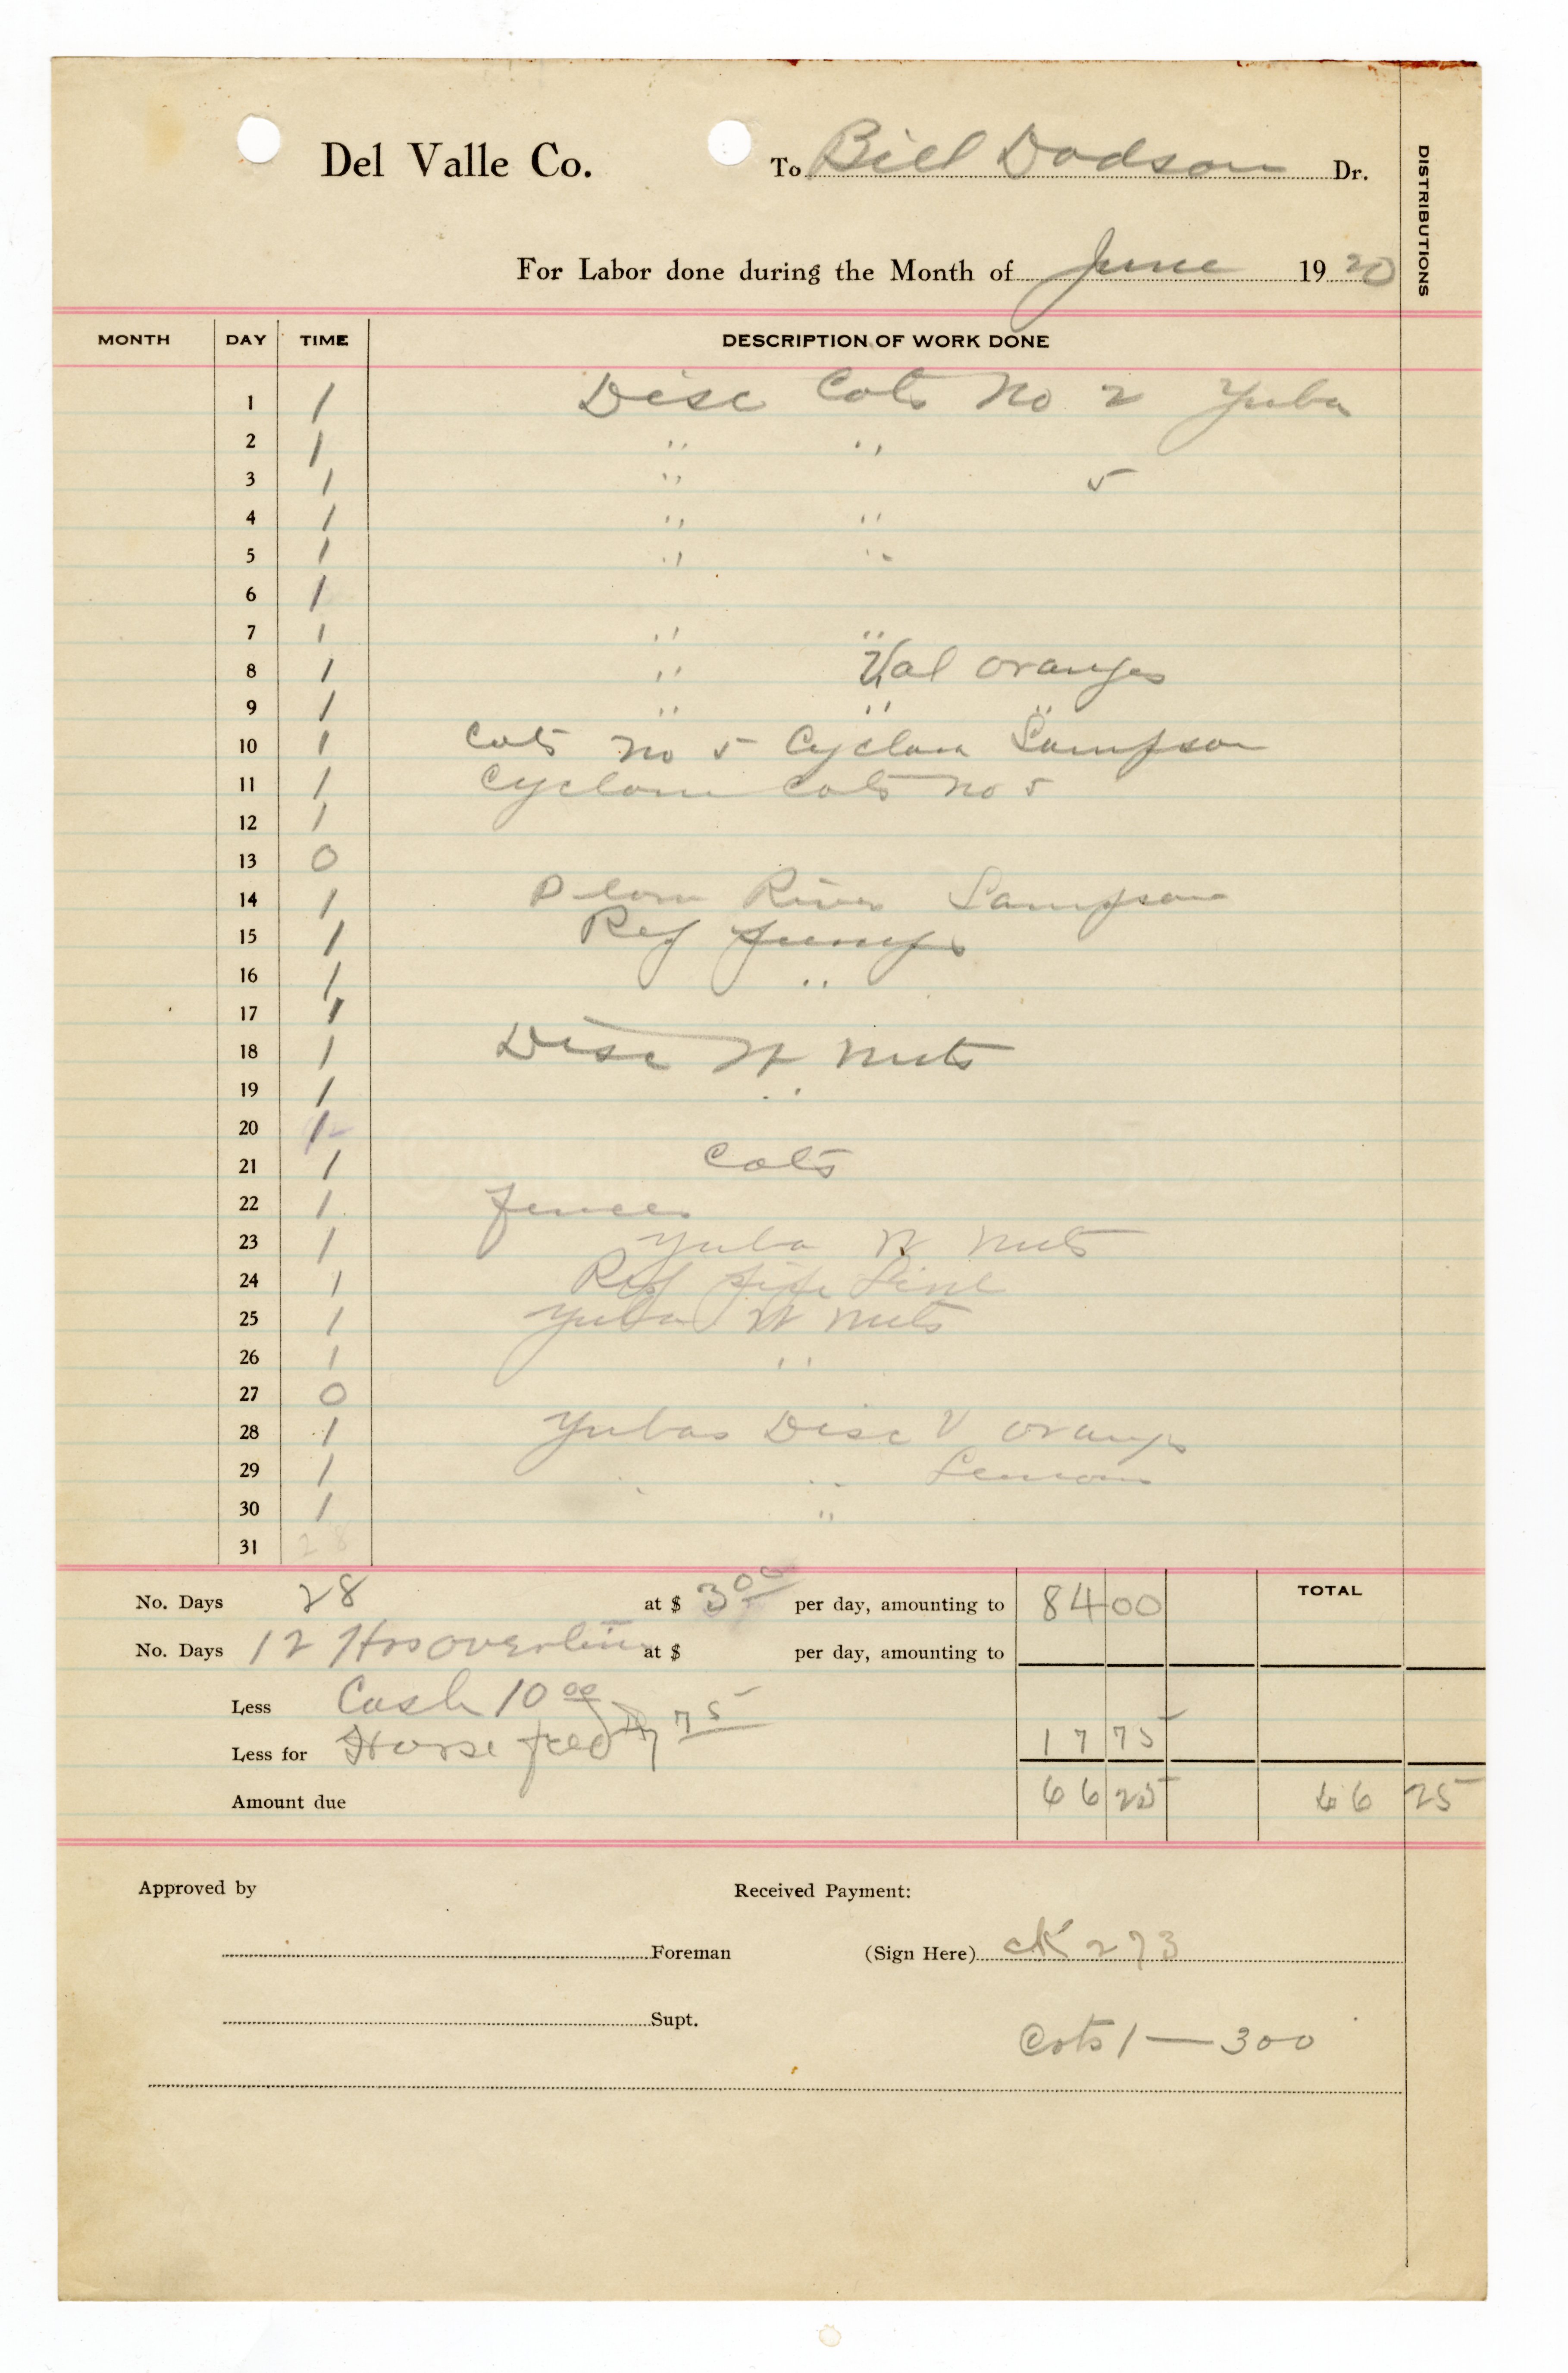 Del Valle Co. To Bill Dodson Dr.
DISTRIBUTIONS
For Labor done during the Month of June 1920
MONTH DAY TIME DESCRIPTION OF WORK DONE
1 1 Disc Cots No 2 Yuba
2 1 " "
3 1 " 5
4 1 " "
5 1 " "
6 1
7 1 " "
8 1 " Val oranges
9 1 " " "
10 1 Cots No 5 Cyclone Sampson
11 1 Cyclone Cots No 5
12 1
13 0
14 1 Plow River Sampson
15 1 Rep pumps
16 1 "
17 1
18 1 Disc W Nuts
19 1 "
20 1
21 1 Cots
22 1 Fences
23 1 Yuba W Nuts
24 1 Rep pipe Line
25 1 Yuba W Nuts
26 1 "
27 0
28 1 Yubas Disc V orange
29 1 " " Lemons
30 1 "
31 28
No. Days 28 at $ 3 00 per day, amounting to 84 00 TOTAL
No. Days 12 Hrs overtime at $ per day, amounting to
Less Cash 10 00
Less for Horse feed 7 75 17 75
Amount due 66 25 66 25
Approved by Received Payment:
Foreman (Sign Here) ck 273
Supt.
Cots 1 — 300